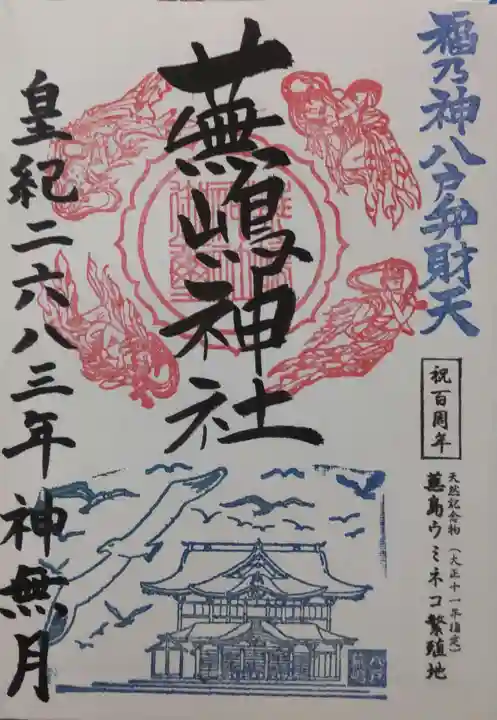 福乃神八戸弁財天
祝百周年
天然記念物(大正十一年指定)
蕪島ウミネコ繁殖地
蕪嶋神社
皇紀二六八三年神無月